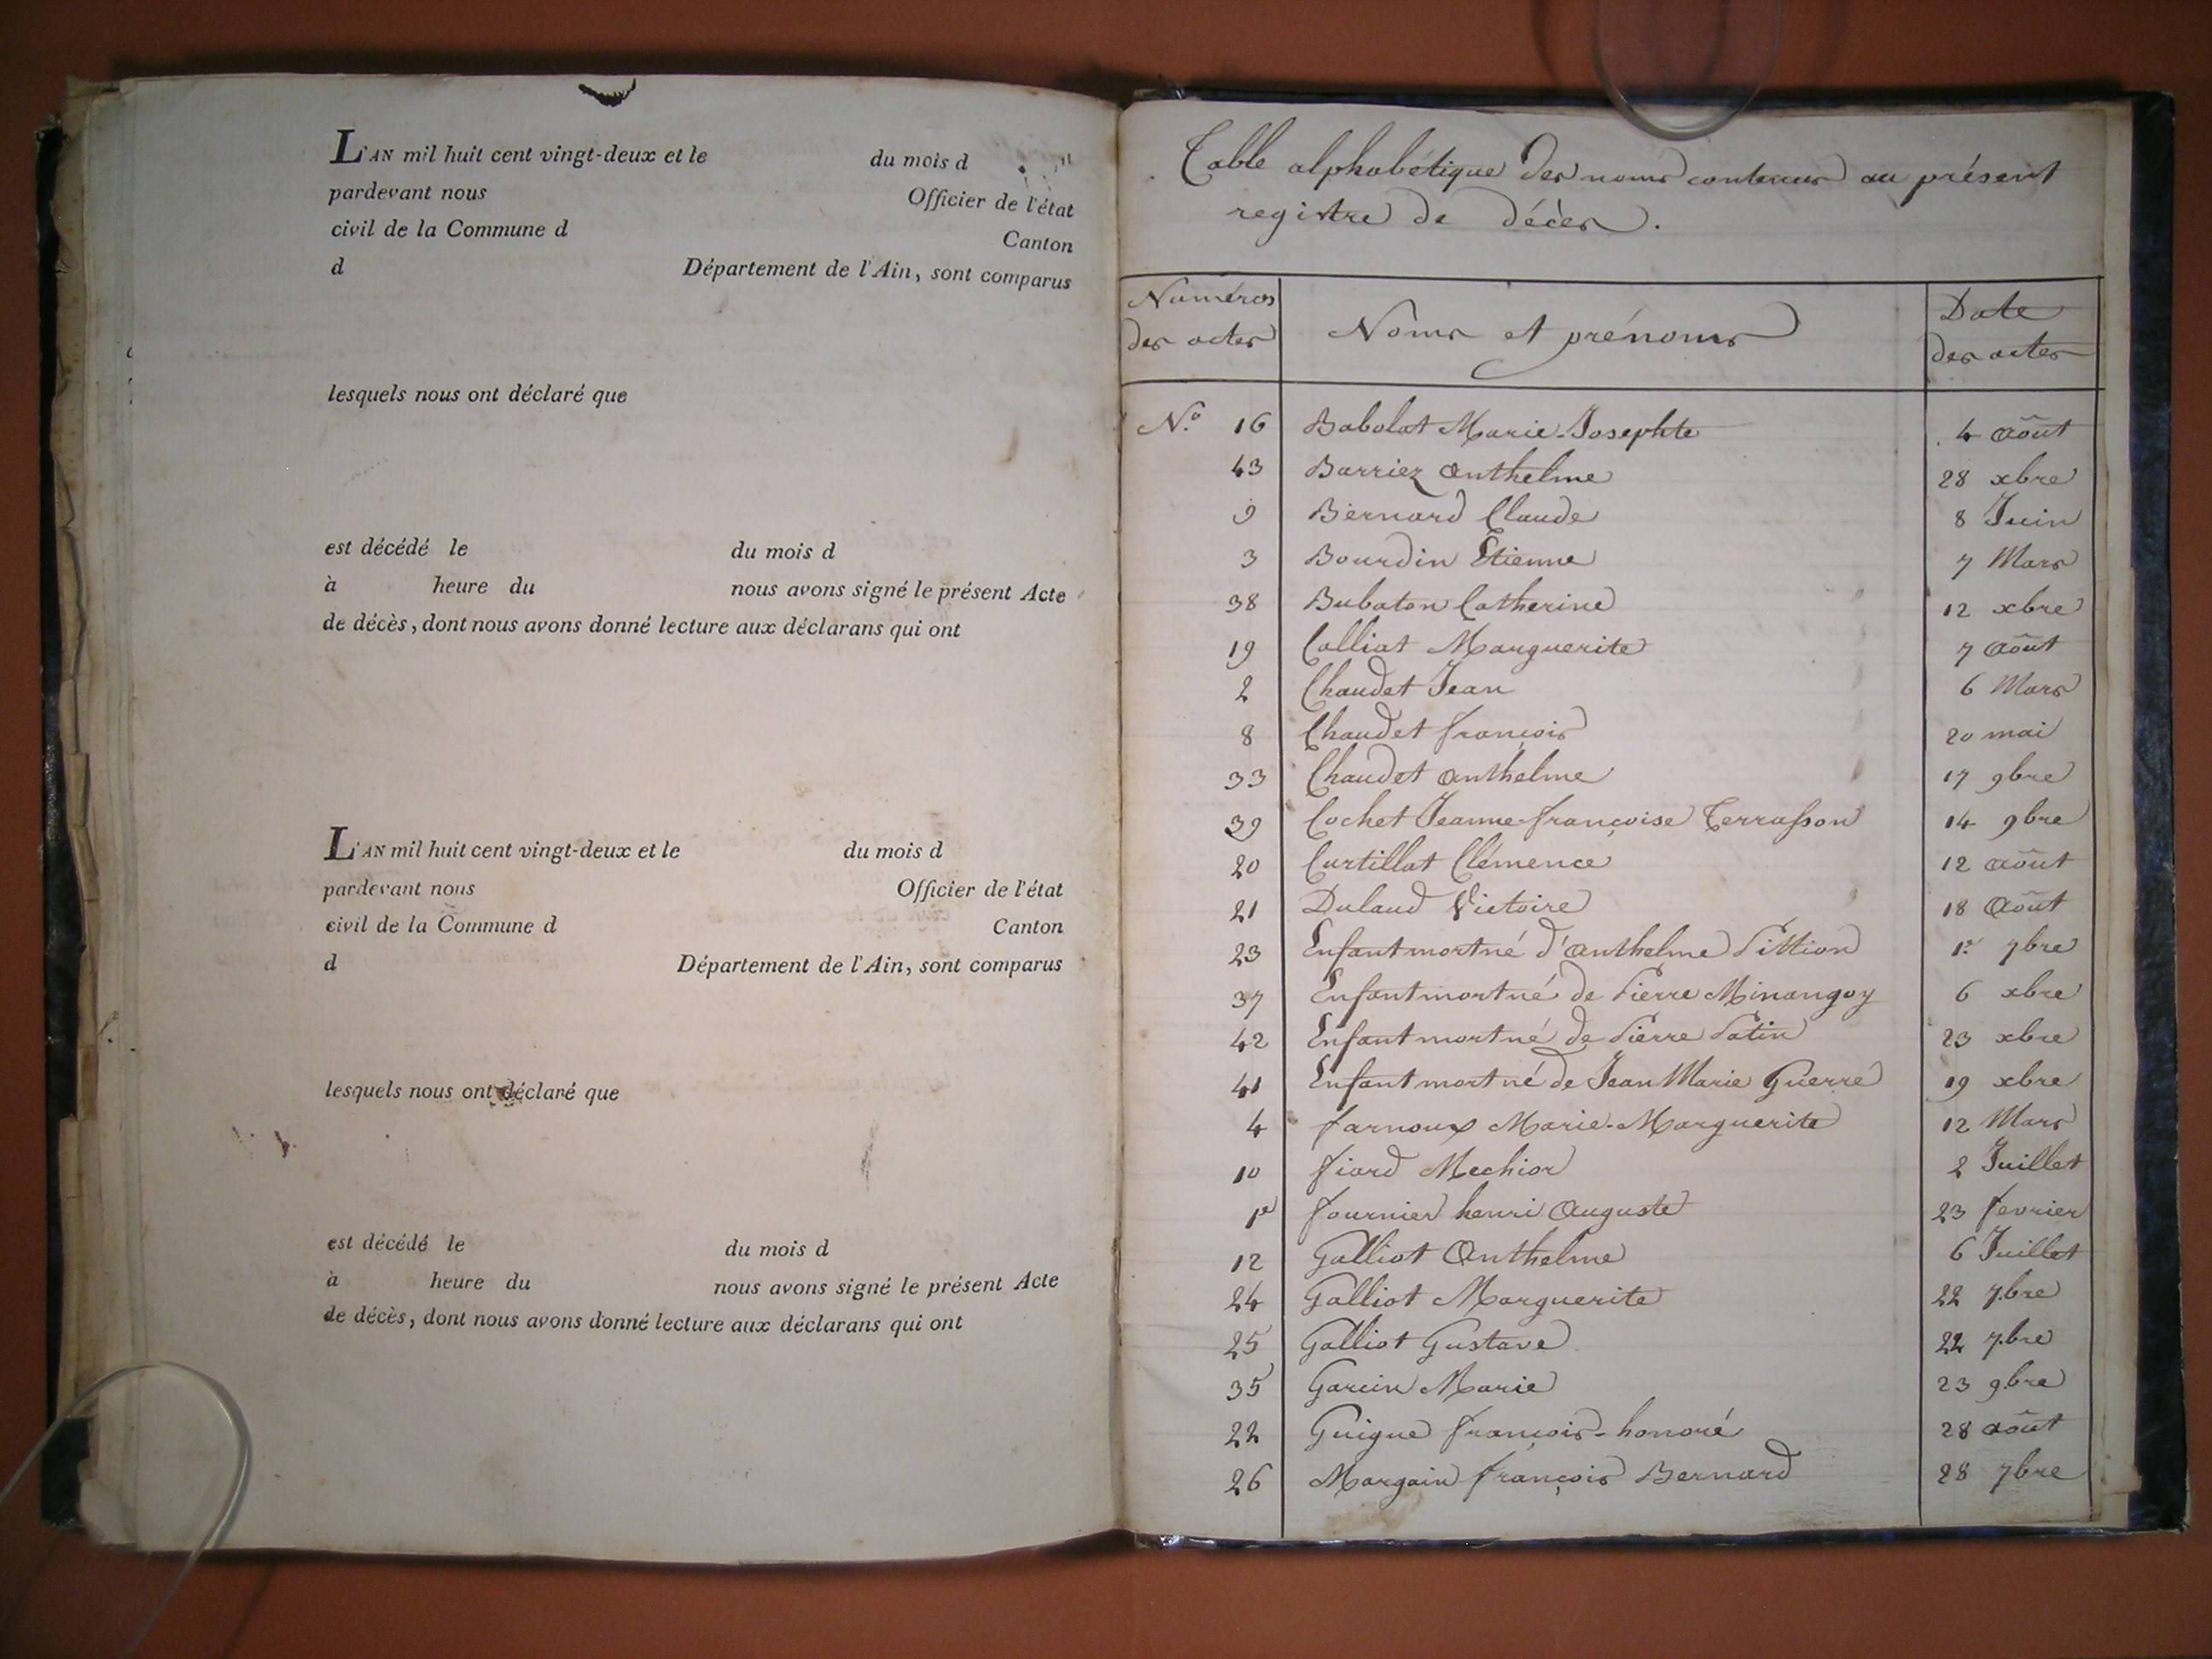 L'AN mil huit cent vingt-deux et le du mois d
pardevant nous Officier de l'état
civil de la Commune d Canton
d Département de l'Ain, sont comparus
lesquels nous ont déclaré que
est décédé le du mois d
à heure du nous avons signé le présent Acte
de décès, dont nous avons donné lecture aux déclarans qui ont
L'AN mil huit cent vingt-deux et le du mois d
pardevant nous Officier de l'état
civil de la Commune d Canton
d Département de l'Ain, sont comparus
lesquels nous ont déclaré que
est décédé le du mois d
à heure du nous avons signé le présent Acte
de décès, dont nous avons donné lecture aux déclarans qui ont
Table alphabétique des noms contenus au présent
registre de décès.
Numéros des actes Noms et prénoms Date des actes
N.o 16 Babolat Marie-Josephte 4 août
43 Barriez anthelme 28 xbre
9 Bernard Claude 8 Juin
3 Bourdin Etienne 7 Mars
38 Bubaton Catherine 12 xbre
19 Calliat Marguerite 7 août
2 Chaudet Jean 6 Mars
8 Chaudet françois 20 mai
33 Chaudet anthelme 17 9bre
39 Cochet Jeanne-françoise Terrasson 14 9bre
20 Curtillat Clémence 12 août
21 Dulaud Victoire 18 août
23 Enfant mort né d'anthelme Pittion 1.er 7bre
37 Enfant mort né de Pierre Minangoy 6 xbre
42 Enfant mort né de Pierre Patin 23 xbre
41 Enfant mort né de Jean Marie Guerré 19 xbre
4 farnoux Marie-Marguerite 12 Mars
10 fiard Mechior 2 Juillet
1er fournier henri Auguste 23 fevrier
12 Galliot Anthelme 6 Juillet
24 Galliot Marguerite 22 7bre
25 Galliot Gustave 22 7bre
35 Garcin Marie 23 9bre
22 Guigue françois-honoré 28 août
26 Margain françois Bernard 28 7bre